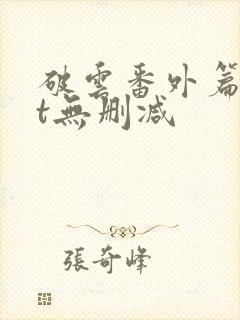 破雲番外篇
t無刪減
張奇峰